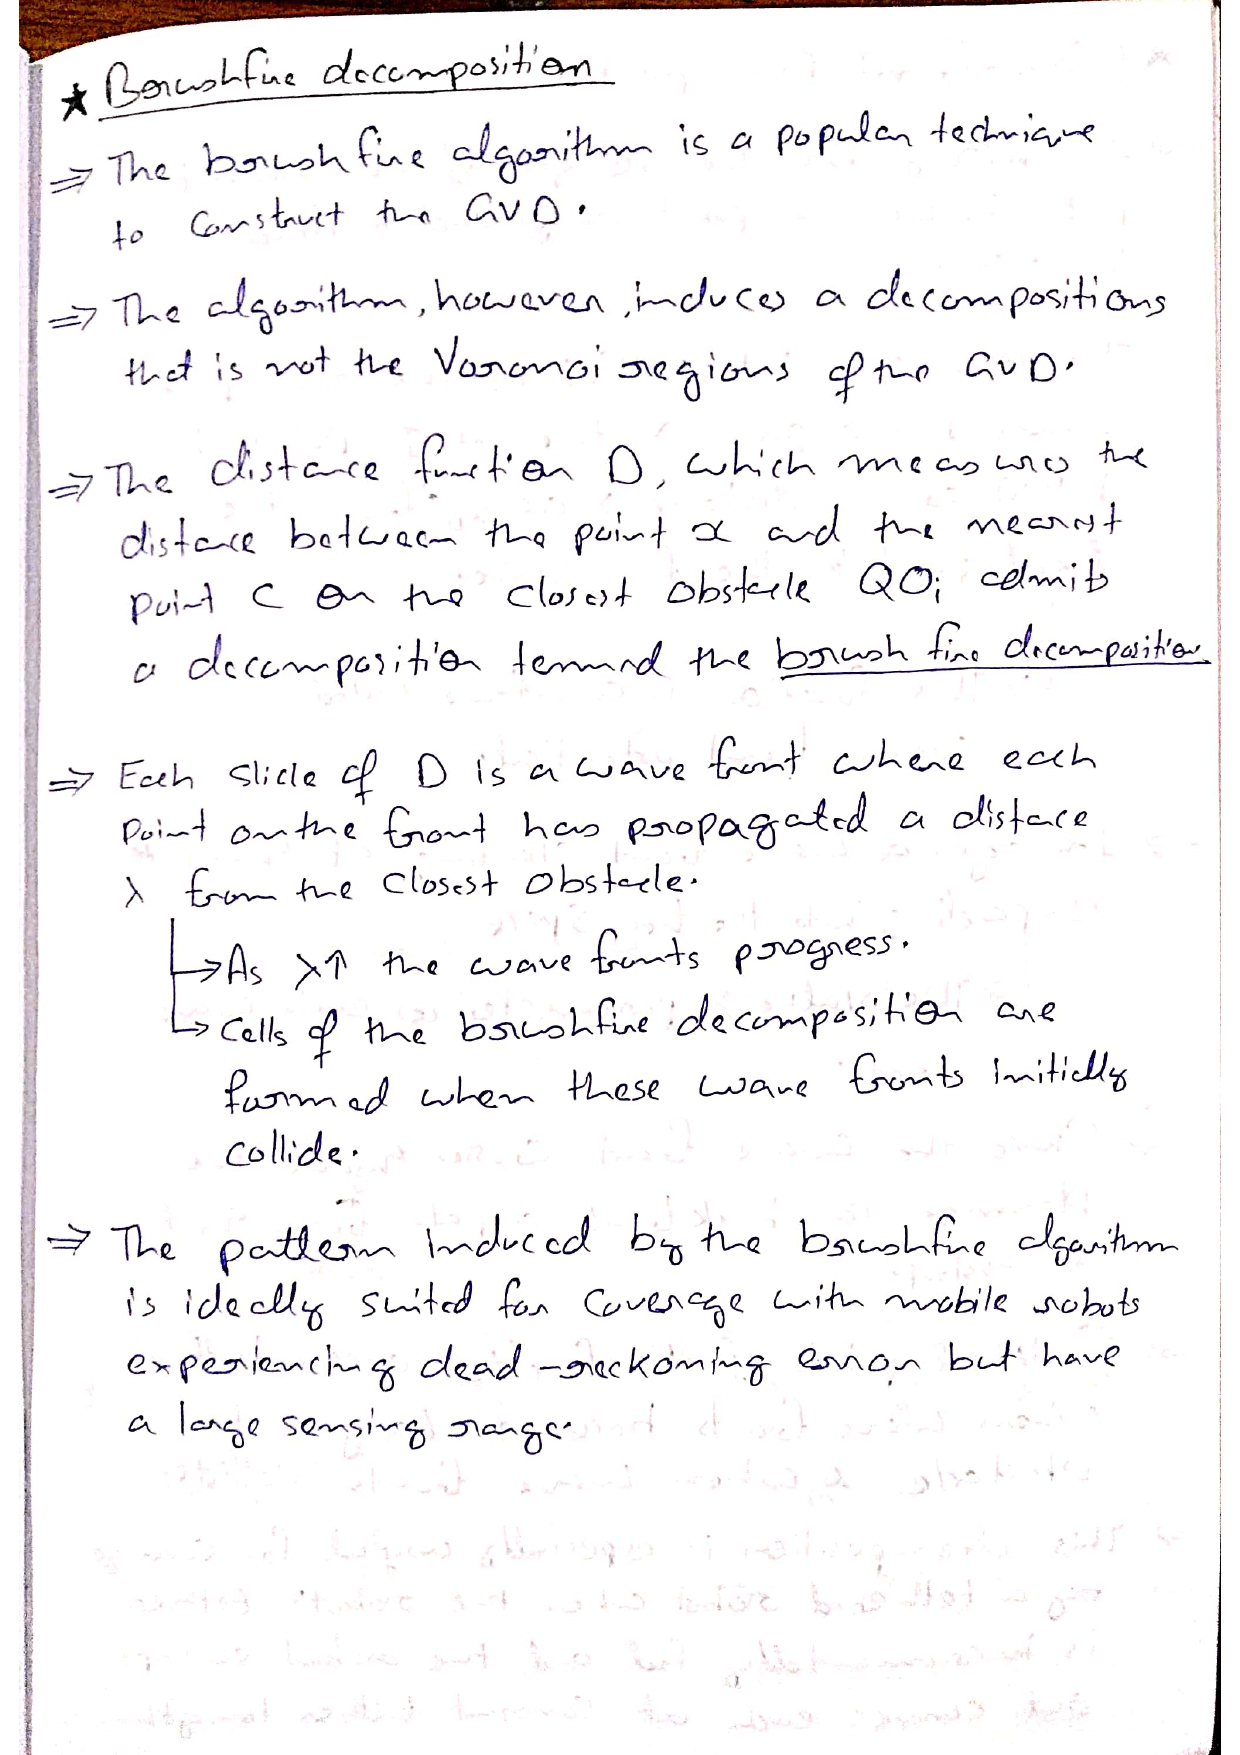 ★ Brushfire decomposition
⇒ The brushfire algorithm is a popular technique
to construct the GVD.
⇒ The algorithm, however, induces a decompositions
that is not the Voronoi regions of the GVD.
⇒ The distance function D, which measures the
distance between the point x and the nearest
point C on the closest obstacle QOi admits
a decomposition termed the brush fire decomposition
⇒ Each slide of D is a wave front where each
point on the front has propagated a distance
λ from the closest obstacle.
→ As λ↑ the wave fronts progress.
→ Cells of the brushfire decomposition are
formed when these wave fronts initially
collide.
⇒ The pattern induced by the brushfire algorithm
is ideally suited for coverage with mobile robots
experiencing dead-reckoning error but have
a large sensing range.